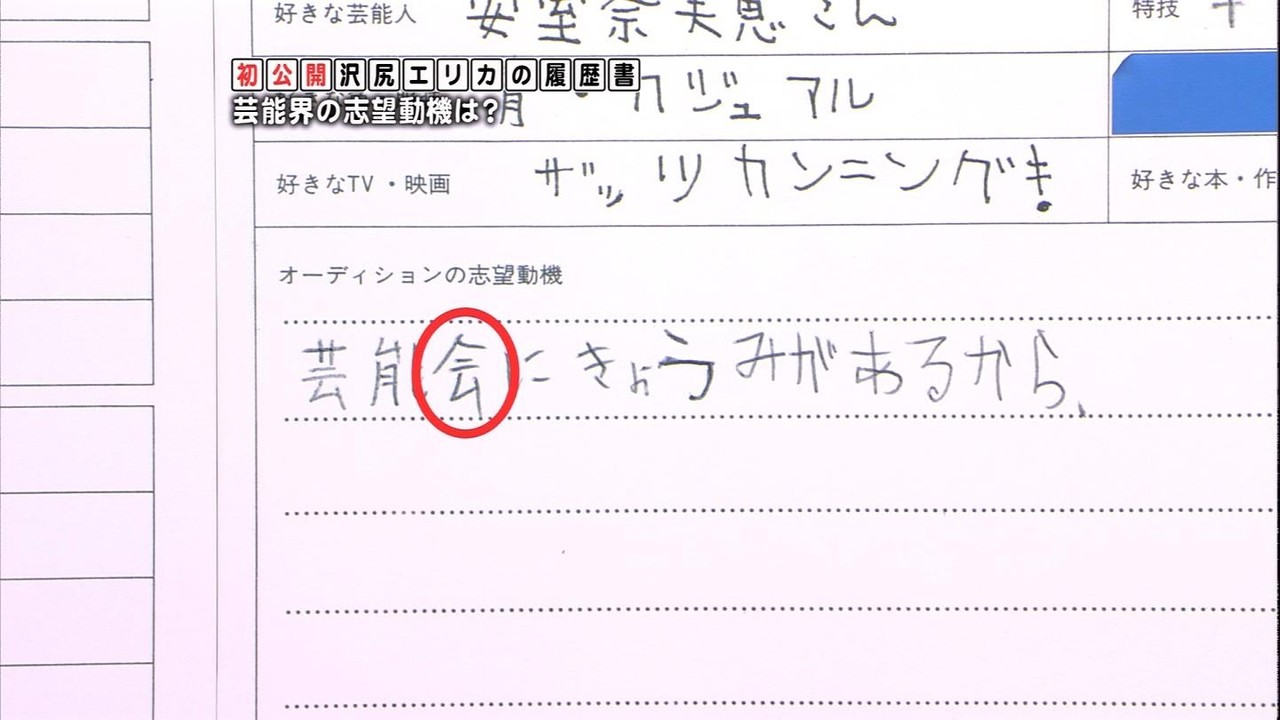 好きな芸能人 安室奈美恵さん 特技
初公開沢尻エリカの履歴書
芸能界の志望動機は?
カジュアル
好きなTV・映画 ザッツカンニング! 好きな本・作
オーディションの志望動機
芸能会にきょうみがあるから、